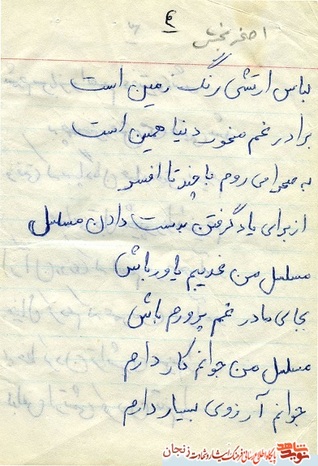 ۴
اصغر بخشی
لباس ارتشی رنگ زمین است
برادر غم مخور دنیا همین است
به صحرا می روم با چند تا افسر
از برای یاد گرفتن بدست دادن مسلسل
مسلسل من غریبم یاور باش
بجای مادر غم پرورم باش
مسلسل من جوانم کار دارم
جوانم آرزوی بسیار دارم
نوید شاهد
پایگاه اطلاع رسانی فرهنگ ایثار و شهادت زنجان